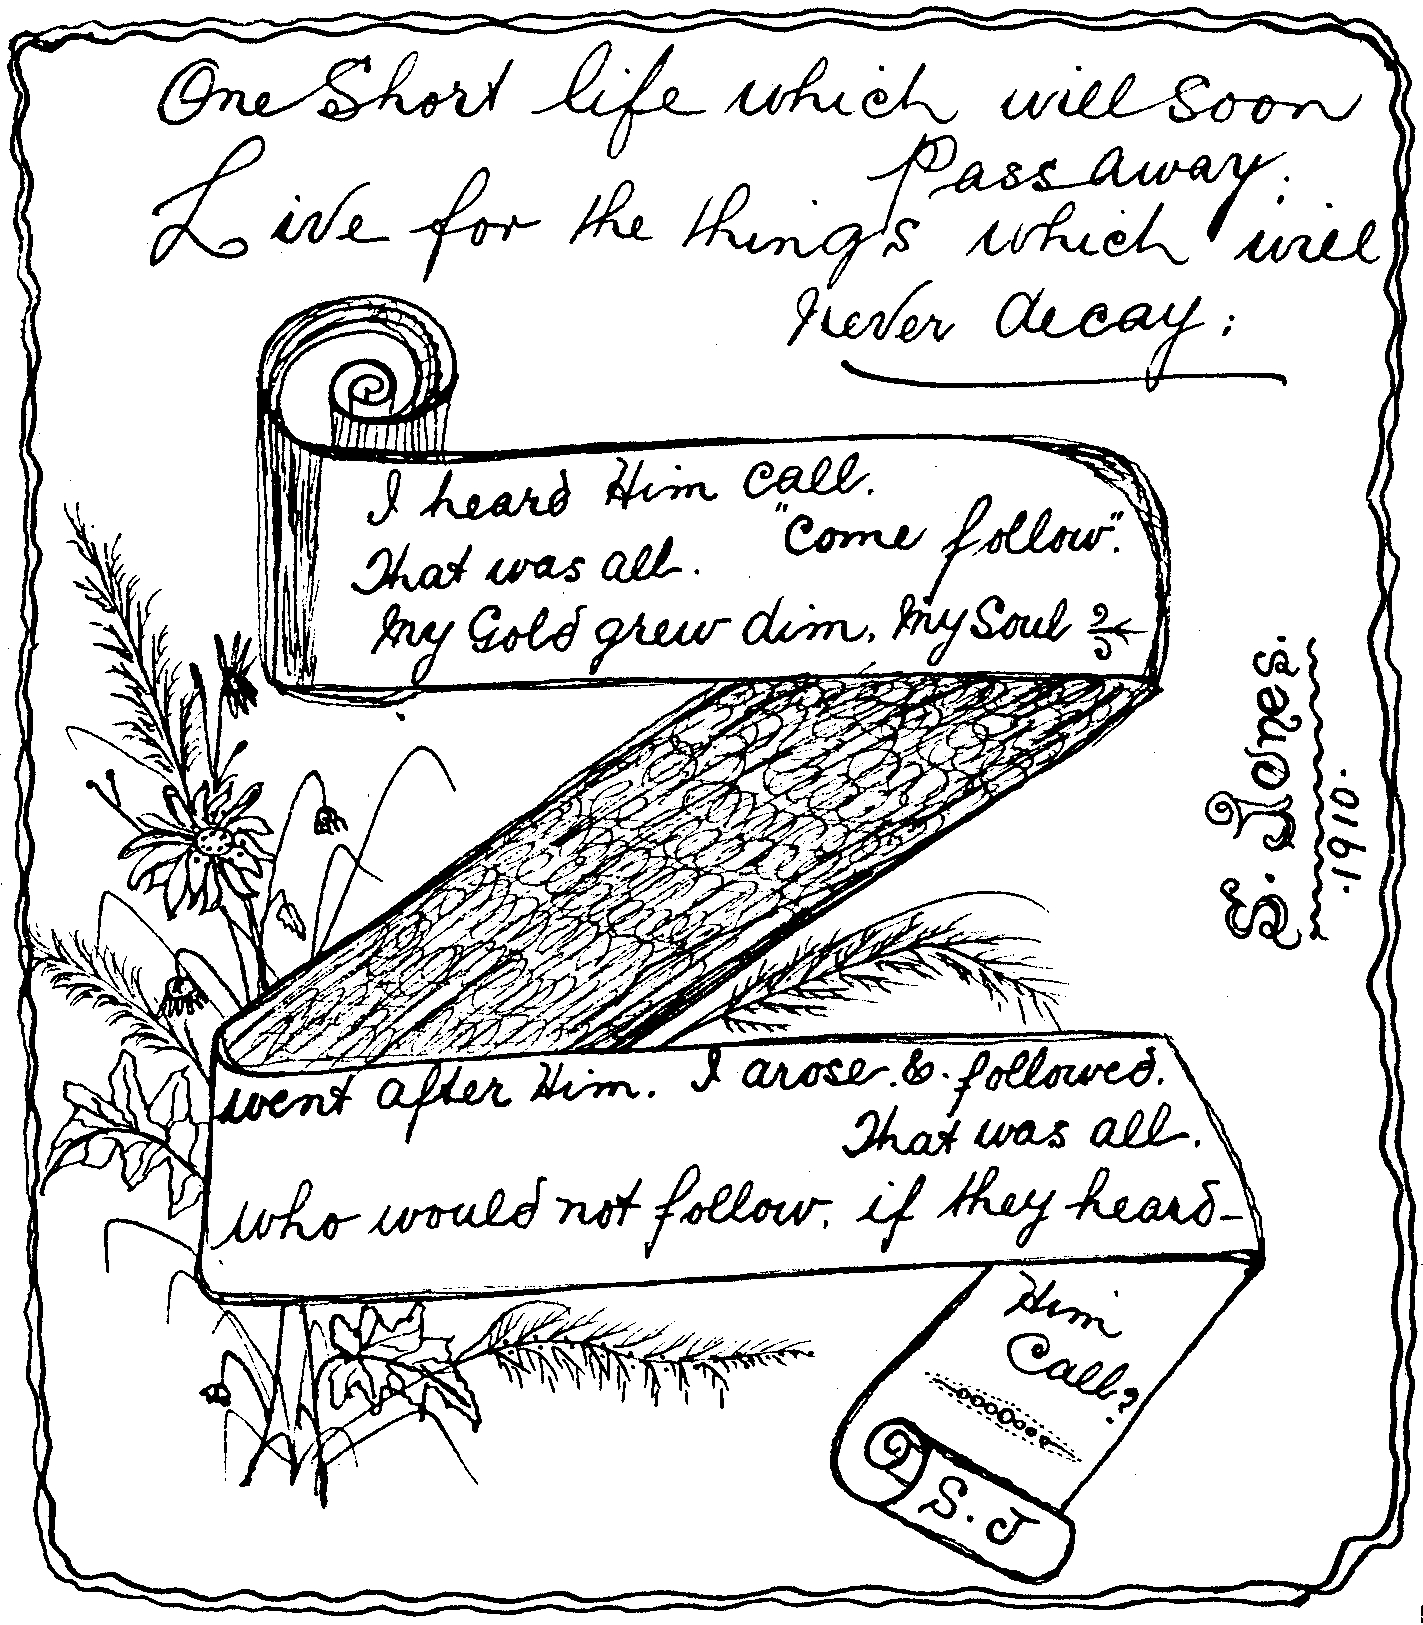 One Short life which will Soon
Pass away.
Live for the things which will
Never decay;
I heard Him Call.
"Come follow".
That was all.
My Gold grew dim, My Soul
went after Him. I arose & followed.
That was all.
who would not follow, if they heard
Him
Call?
S. J
S. Jones.
.1910.